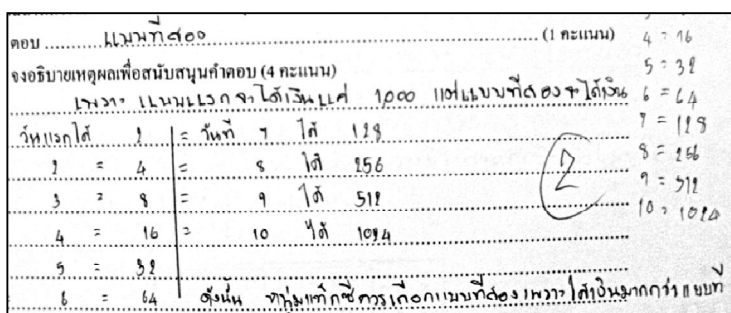 ตอบ แบบที่สอง (1 คะแนน)
จงอธิบายเหตุผลเพื่อสนับสนุนคำตอบ (4 คะแนน)
เพราะ แบบแรกจะได้เงินแค่ 1,000 แต่แบบที่สองจะได้เงิน
วันแรกได้ 2 = วันที่ 7 ได้ 128
2 = 4 = 8 ได้ 256
3 = 8 = 9 ได้ 512
4 = 16 = 10 ได้ 1024
5 = 32
6 = 64 ดังนั้น หนุ่มแท็กซี่ควรเลือกแบบที่สองเพราะได้เงินมากกว่าแบบที่
2
4 = 16
5 = 32
6 = 64
7 = 128
8 = 256
9 = 512
10 = 1024